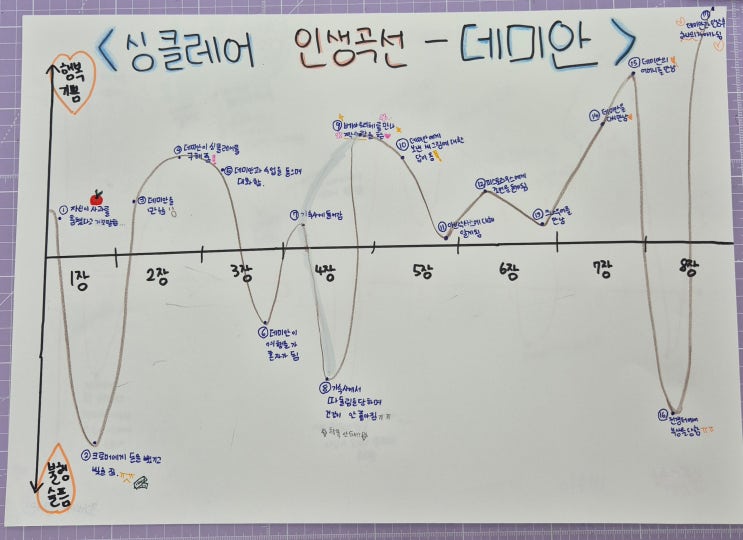 <싱클레어 인생곡선 - 데미안>
행복
기쁨
① 자신이 사과를
훔쳤다고 거짓말함...
② 크로머에게 돈을 뺏기고
빚을 짐. ㅠㅠ
③ 데미안을
만남
④ 데미안이 싱클레어를
구해줌
⑤ 데미안과 수업을 들으며
대화함.
⑥ 데미안이
여행을 가
혼자가 됨
⑦ 기숙사에 들어감
⑧ 기숙사에서
따돌림을 당하며
건강이 안 좋아짐 ㅠㅠ
⑨ 베아트리체를 만나
⑩ 데미안에게
보낸 새 그림에 대한
답이 옴
⑪ 아브락사스에 대해
알게됨
⑫ 피스토리우스에게
⑬ 크나우어를
만남
⑭ 데미안을
다시 만남
⑮ 데미안의
어머니를 만남
⑯ 전쟁터에서
부상을 당함 ㅠㅠ
⑰
1장
2장
3장
4장
5장
6장
7장
8장
불행
슬픔